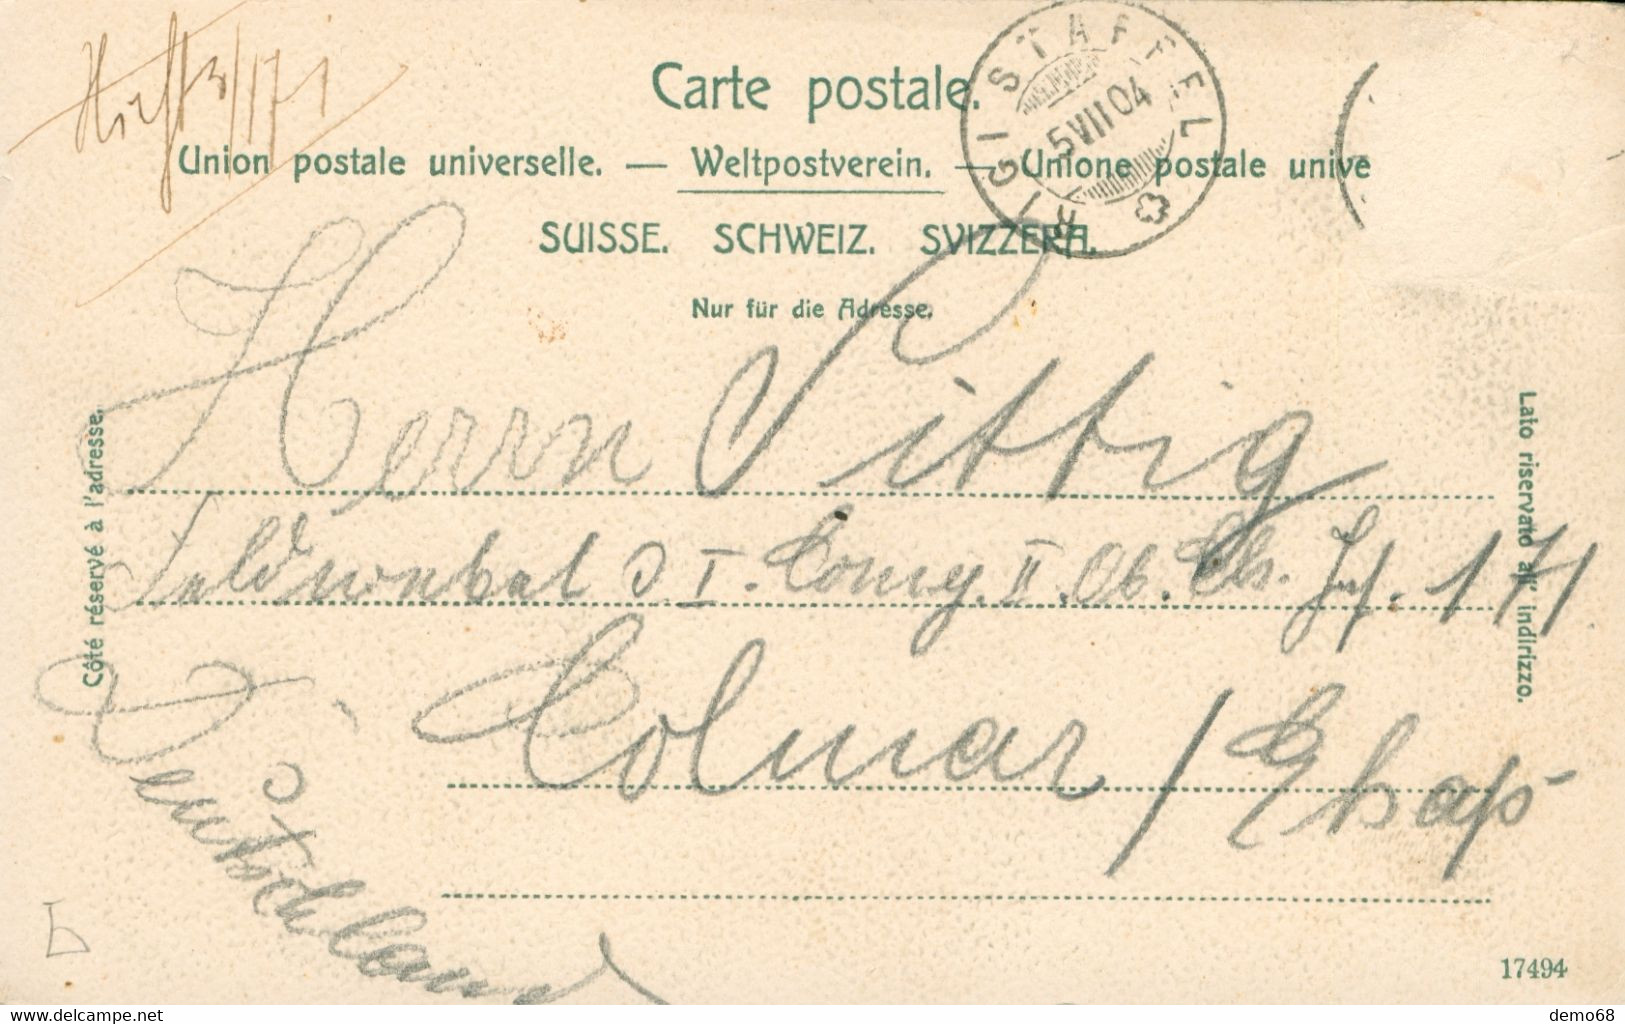 Carte postale.
Union postale universelle. — Weltpostverein. — Unione postale unive
SUISSE. SCHWEIZ. SVIZZERA.
Nur für die Adresse.
RIGISTAFFEL
5 VII 04
Côté réservé à l'adresse.
Lato riservato all' indirizzo.
Herrn Vittig
Feldwebel d. I. Comg. II. Ob. Els. Inf. 171
Colmar / Elsaß
Deutschland
17494
delcampe.net
demo68